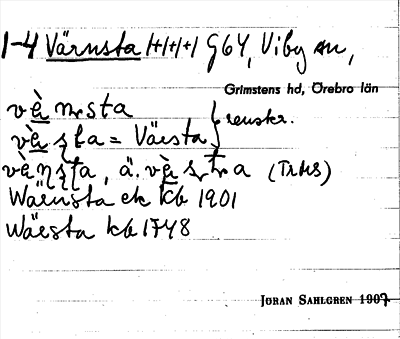 1-4 Värnsta 1+1+1+1 G64, Viby sn,
Grimstens hd, Örebro län
vèṇsta
vèṣta = Väesta } renskr.
vèṇṣta, ä. vèṣta (TrMS)
Wäensta ek kb 1901
Wäesta kb 1748
JÖRAN SAHLGREN 1907.